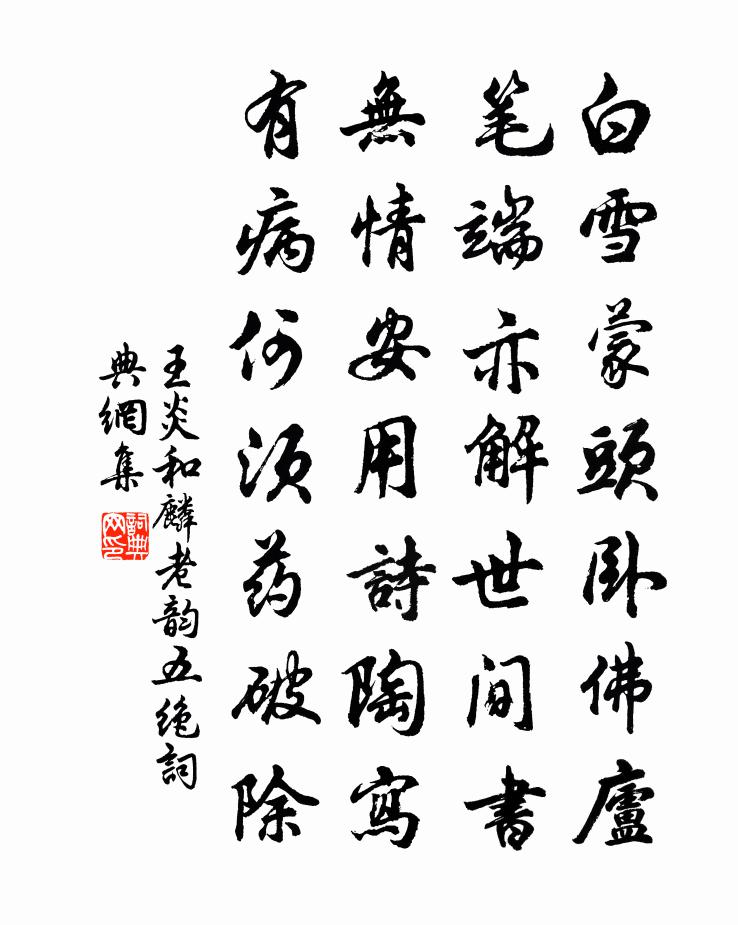 白雪蒙頭卧佛廬
笔端亦解世间書
無情安用詩陶寫
有病何須药破除
王炎和麟老韵五绝詞
典網集
詞典网印